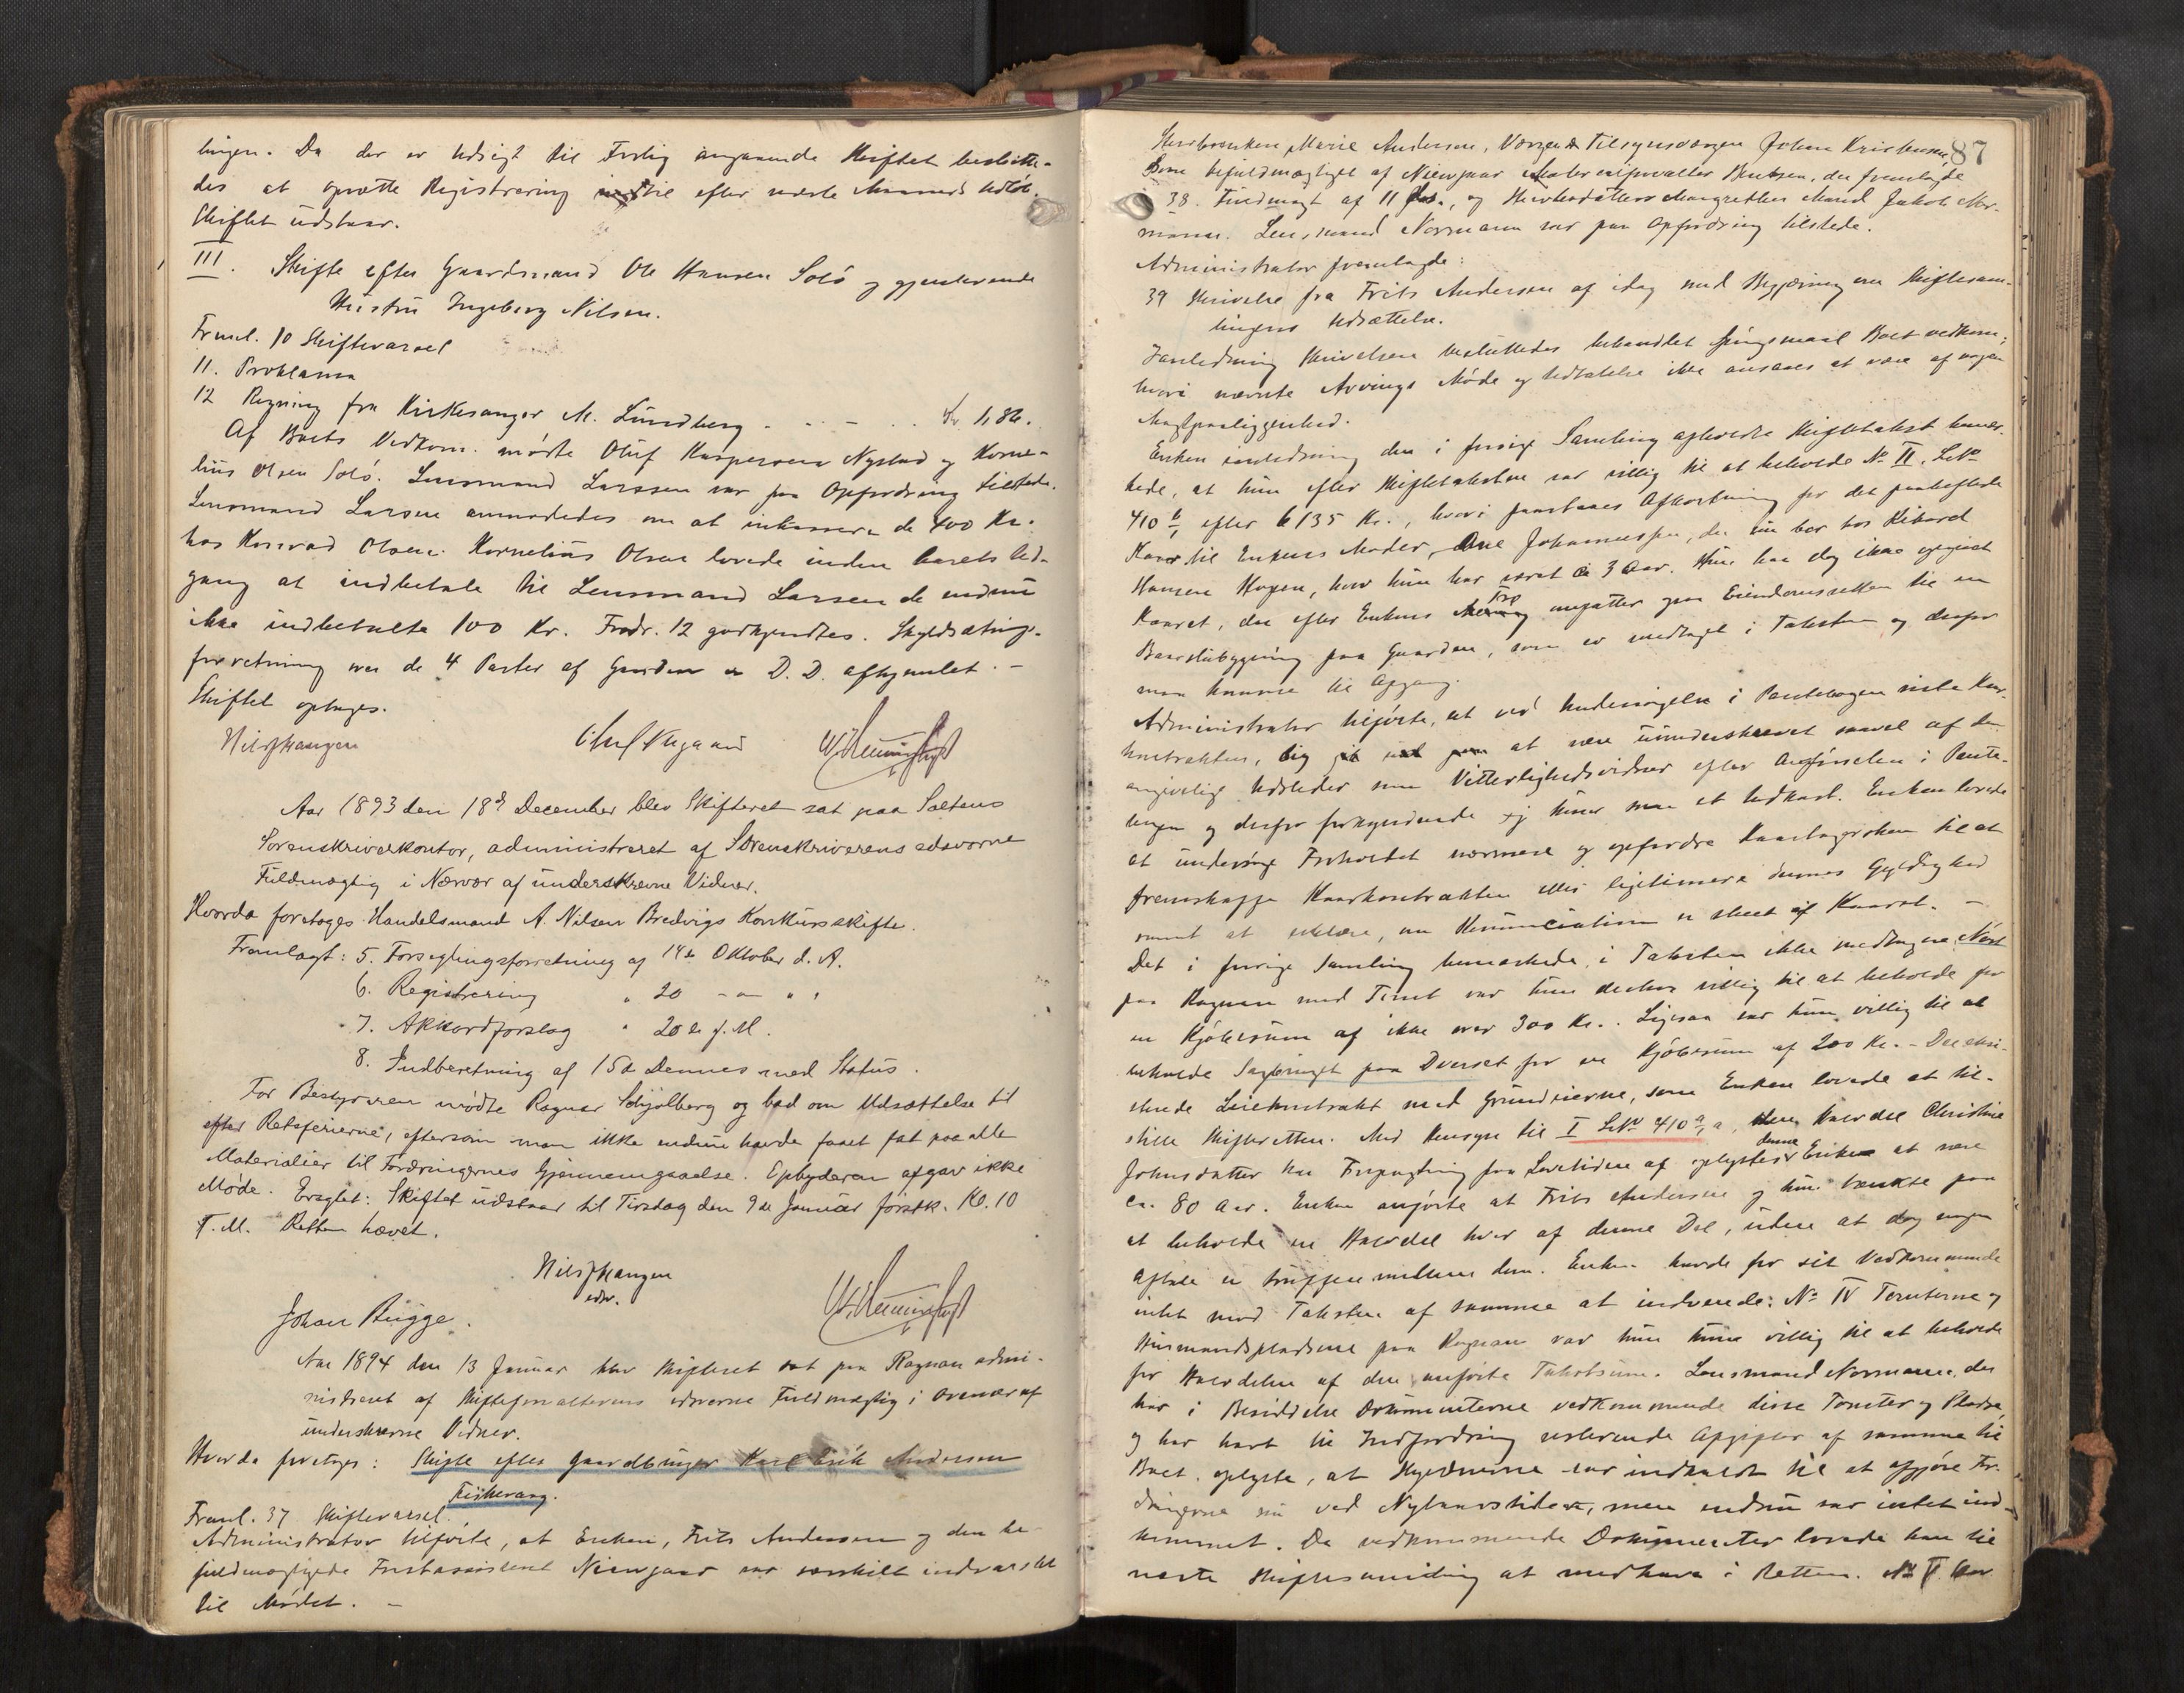 lingen. Da der er Udsigt til Forlig angaaende Skiftet beslutte-
des at opsætte Registrering indtil efter næste Maaneds Udløb.
Skiftet udstaar.
III. Skifte efter Gaardmand Ole Hansen Solö og gjenlevende
Hustru Ingeborg Nilsen.
Freml. 10 Skiftevarsel
11. Proklama
12 Regning fra Kirkesanger M. Lundberg - - - - Kr 1,86.
Af Boets Vedkom. mødte Oluf Kaspersen Nystad og Korne-
lius Olsen Solö. Lensmand Larssen var paa Opfordring tilstede.
Lensmand Larsen anmodedes om at inkassere de 400 Kr.
hos Konrad Olsen. Kornelius Olsen lovede inden Aarets Ud-
gang at indbetale til Lensmand Larsen de endnu
ikke indbetalte 100 Kr. Fordr. 12 godkjendtes. Skyldsætnings-
forretning over de 4 Parter af Gaarden er D. D. afhjemlet. -
Skiftet optages.
Nils Hangen
Aar 1893 den 18de December blev Skifteret sat paa Saltens
Sorenskriverkontor, administreret af Sorenskriverens edsvorne
Fuldmægtig i Nærvær af underskrevne Vidner.
Hvorda foretoges Handelsmand A. Nilsen Bredvigs Konkursskifte.
Fremlagt: 5. Forseglingsforretning af 14de Oktober d. A.
6. Registrering " 20 - " - " "
7. Akkordforslag " 20de f. M.
8. Indberetning af 15de Dennes med Status.
For Bestyreren mødte Ragnar Schjølberg og bad om Udsættelse til
efter Retsferierne, eftersom man ikke endnu havde faaet fat paa alle
Materialier til Fordringernes Gjennemgaaelse. Opbyderen afgav ikke
Møde. Eragtet: Skiftet udstaar til Tirsdag den 9de Januar førstk. Kl. 10
F. M. Retten hævet.
Nils Hangen
edsv.
Johan Brigge.
Aar 1894 den 13 Januar blev Skifteret sat paa Rognan admi-
nistreret af Skifteforvalterens edsvorne Fuldmægtig i Overvær af
underskrevne Vidner.
Hvorda foretoges: Skifte efter Gaardbruger Karl Erik Andersen
Fiskevaag.
Freml. 37 Skiftevarsel.
Administrator tilførte, at Enken, Frits Andersen og den be-
fuldmægtigede Forstassistent Niewgaar var særskilt indvarslet
til Mødet. -
87
Marie Andersen, Tilsynsværgen Johan Kristensen,
befuldmægtiget af Niewgaar Materialforvalter Bentsen, der fremlagde
38. Fuldmagt af 11 ds., og Margrethes Mand Jakob Nor-
mann. Lensmand Normann var paa Opfordring tilstede.
Administrator fremlagde:
39 Skrivelse fra Frits Andersen af idag med Begjæring om Skiftesam-
lingens Udsættelse.
I Anledning Skrivelsen besluttedes behandlet Spørgsmaal Boet vedkom.,
hvori nævnte Arvings Møde og Udtalelse ikke ansaaes at være af nogen
Magtpaaliggenhed.
Enken i Anledning den i forrige Samling afholdte Skiftetakst bemær-
kede, at hun efter Skiftetaksten var villig til at beholde No II. LNo
410 b, efter 6135 Kr., hvori paastaaes Afkortning for det paaheftede
Kaar til Enkens Moder, Ane Johannessen, der nu bor hos Rikard
Hansen Hogen, hvor hun har været ca 3 Aar. Hun har dog ikke opgivet
Kaaret, der efter Enkens Mening omfatter ogsaa Eiendomsretten til en
Baarstubygning paa Gaarden, som er medtaget i Taksten og derfor
maa komme til Afgang.
Administrator tilførte, at ved Undersøgelse i Pantebogen viste Kaar-
kontrakten, sig at være uunderskrevet saavel af den
angivelige Udsteder som Vitterlighedsvidner efter Anførselen i Pante-
bogen og derfor forkyndende ej kuns som et Udkast. Enken lovede
at undersøge Forholdet nærmere og opfordre Kaartagersken til at
fremskaffe Kaarkontrakten eller legitimere dennes Gyldighed
samt at erklære, om Renunciation er skeet af Kaaret. -
Det i forrige Samling bemærkede, i Taksten ikke medtagne Nøst
paa Rognan med Tomt var hun derhos villig til at beholde for
en Kjøbesum af ikke over 300 Kr.. Ligesaa var hun villig til at
beholde Sagbruget paa Dverset for en Kjøbesum af 200 Kr. - Der eksi-
sterede Leiekontrakt med Grundeierne, som Enken lovede at til-
stille Skifteretten. Med Hensyn til I LNo 410 a, Halvdel Christine
Johnsdatter har Forpagtning paa Levetiden af oplystes denne Enken at være
ca. 80 Aar. Enken anførte at Frits Andersen og hun tænkte paa
at beholde en Halvdel hver af denne Del, uden at dog nogen
Aftale er truffen mellem dem. Enken havde for sit Vedkommende
intet mod Taksten af samme at indvende. No IV Tomterne og
Husmandspladsene paa Rognan var hun kun villig til at beholde
for Halvdelen af den anførte Takstsum. Lensmand Normann, der
har i Besiddelse Dokumenterne vedkommende disse Tomter og Pladse
og har havt til Indfordring resterende Afgifter af samme til
Boet, oplyste, at Skyldnerne var indkaldt til at afgjøre For-
dringerne nu ved Nytaarstider, men endnu var intet ind-
kommet. De vedkommende Dokumenter lovede han til
næste Skiftesamling at medhave i Retten. No V